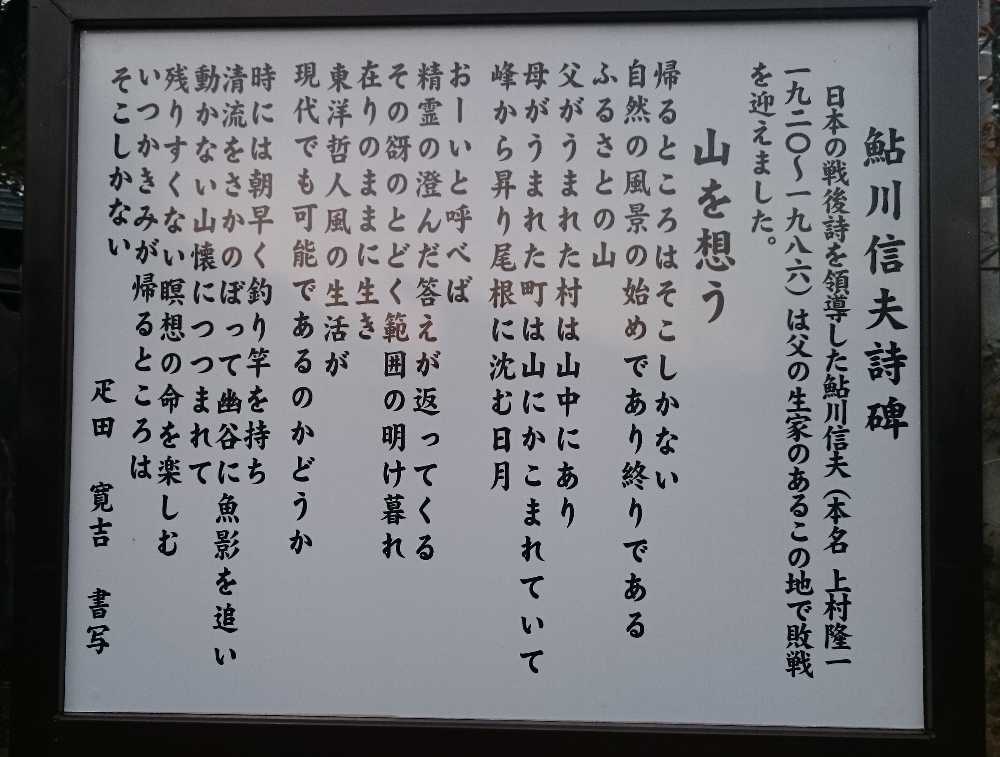 鮎川信夫詩碑
日本の戦後詩を領導した鮎川信夫（本名 上村隆一
一九二〇～一九八六）は父の生家のあるこの地で敗戦
を迎えました。
山を想う
帰るところはそこしかない
自然の風景の始めであり終りである
ふるさとの山
父がうまれた村は山中にあり
母がうまれた町は山にかこまれていて
峰から昇り尾根に沈む日月
おーいと呼べば
精霊の澄んだ答えが返ってくる
その谺のとどく範囲の明け暮れ
在りのままに生き
東洋哲人風の生活が
現代でも可能であるのかどうか
時には朝早く釣り竿を持ち
清流をさかのぼって幽谷に魚影を追い
動かない山懐につつまれて
残りすくない瞑想の命を楽しむ
いつかきみが帰るところは
そこしかない
疋田 寛吉 書写